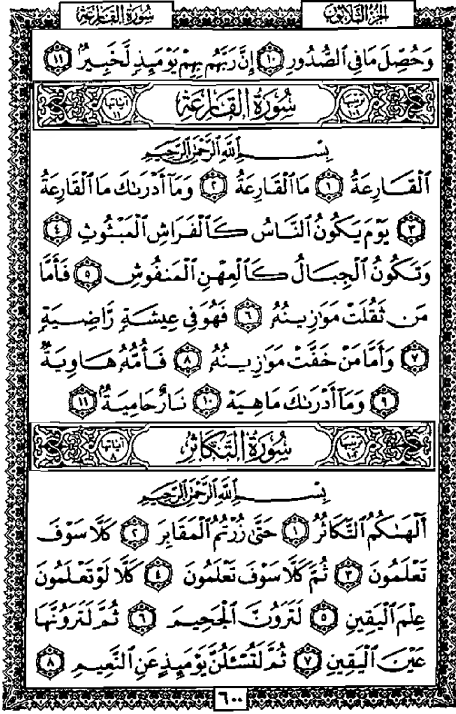 الجزء الثلاثون سورة القارعة
وَحُصِّلَ مَا فِي ٱلصُّدُورِ ١٠ إِنَّ رَبَّهُم بِهِمْ يَوْمَئِذٍ لَّخَبِيرٌ ١١
سُورَةُ القَارِعَةِ
بِسْمِ ٱللَّهِ ٱلرَّحْمَٰنِ ٱلرَّحِيمِ
ٱلْقَارِعَةُ ١ مَا ٱلْقَارِعَةُ ٢ وَمَآ أَدْرَىٰكَ مَا ٱلْقَارِعَةُ
٣ يَوْمَ يَكُونُ ٱلنَّاسُ كَٱلْفَرَاشِ ٱلْمَبْثُوثِ ٤
وَتَكُونُ ٱلْجِبَالُ كَٱلْعِهْنِ ٱلْمَنفُوشِ ٥ فَأَمَّا
مَن ثَقُلَتْ مَوَٰزِينُهُۥ ٦ فَهُوَ فِي عِيشَةٍ رَّاضِيَةٍ
٧ وَأَمَّا مَنْ خَفَّتْ مَوَٰزِينُهُۥ ٨ فَأُمُّهُۥ هَاوِيَةٌ
٩ وَمَآ أَدْرَىٰكَ مَا هِيَهْ ١٠ نَارٌ حَامِيَةٌ ١١
سُورَةُ التَّكَاثُرِ
بِسْمِ ٱللَّهِ ٱلرَّحْمَٰنِ ٱلرَّحِيمِ
أَلْهَىٰكُمُ ٱلتَّكَاثُرُ ١ حَتَّىٰ زُرْتُمُ ٱلْمَقَابِرَ ٢ كَلَّا سَوْفَ
تَعْلَمُونَ ٣ ثُمَّ كَلَّا سَوْفَ تَعْلَمُونَ ٤ كَلَّا لَوْ تَعْلَمُونَ
عِلْمَ ٱلْيَقِينِ ٥ لَتَرَوُنَّ ٱلْجَحِيمَ ٦ ثُمَّ لَتَرَوُنَّهَا
عَيْنَ ٱلْيَقِينِ ٧ ثُمَّ لَتُسْـَٔلُنَّ يَوْمَئِذٍ عَنِ ٱلنَّعِيمِ ٨
٦٠٠